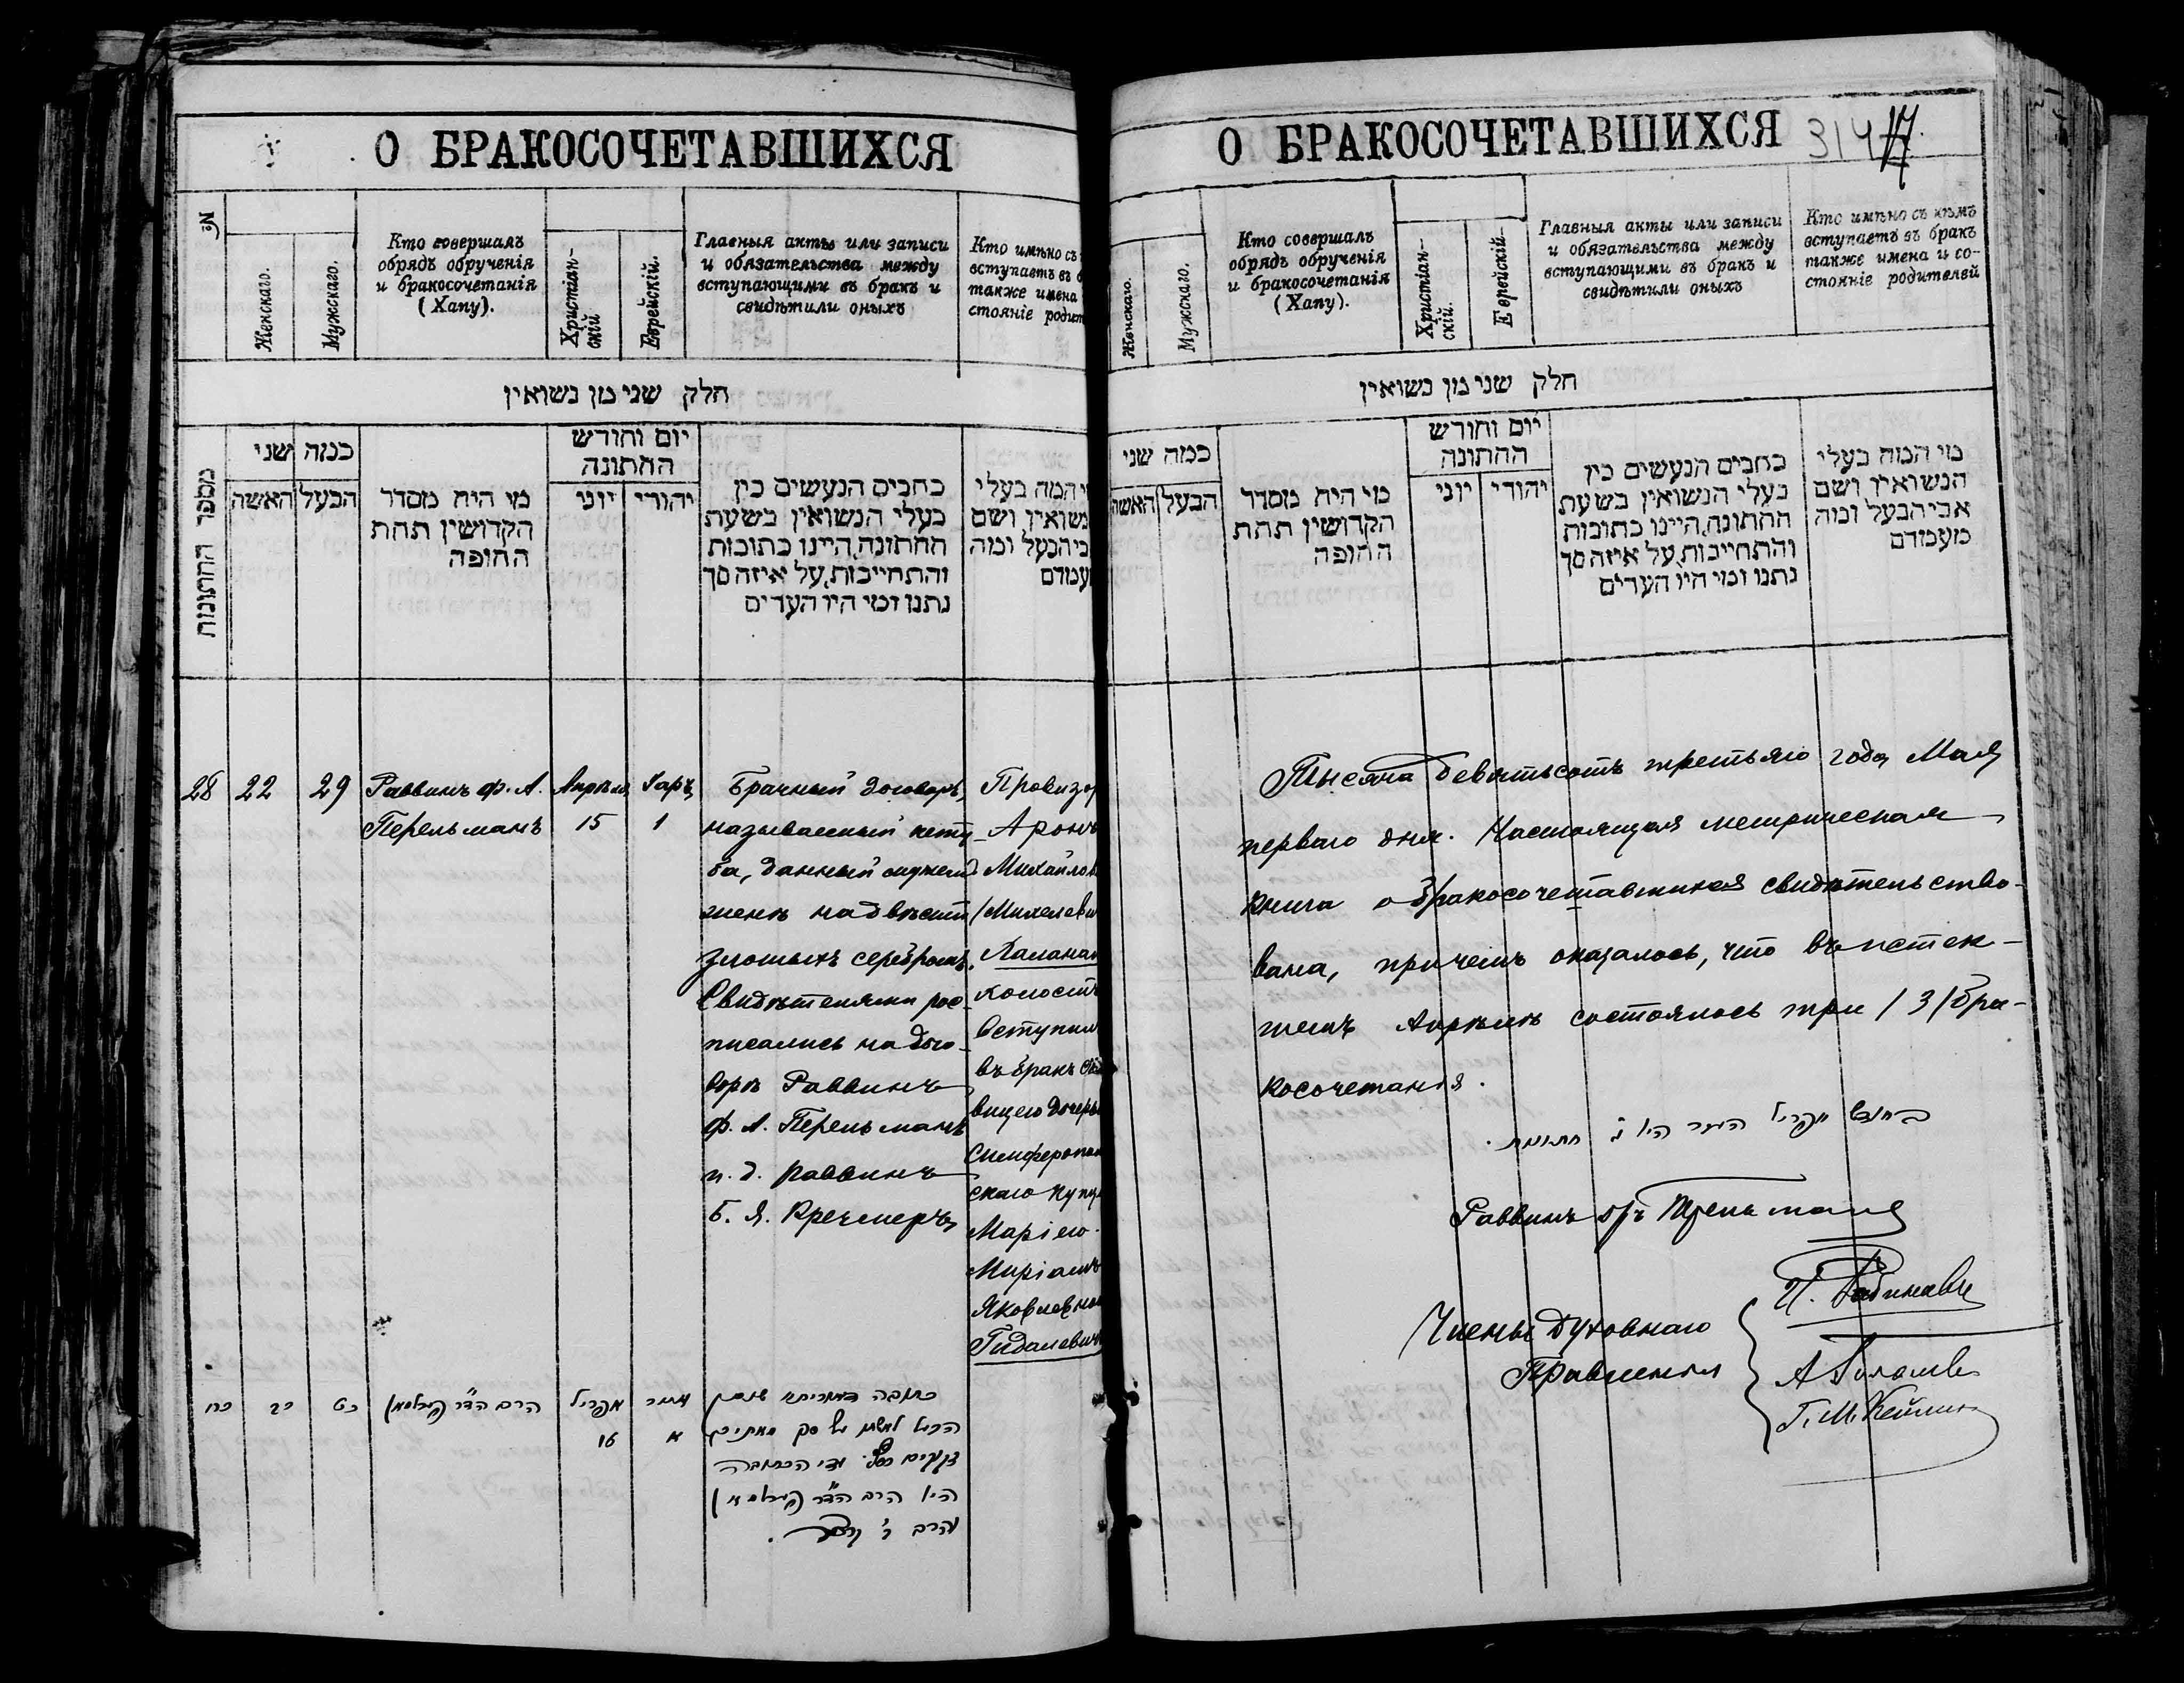 О БРАКОСОЧЕТАВШИХСЯ
№
Женскаго.
Мужскаго.
Кто совершалъ
обрядъ обрученія
и бракосочетанія
(Хапу).
Христіан-
скій
Еврейскій.
Главныя акты или записи
и обязательства между
вступающими въ бракъ и
свидѣтили оныхъ
Кто имѣно съ
вступаетъ въ б
также имена
стояніе родит
חלק שני מן נשואין
מספר החתונות
כמה שני
האשה
הבעל
מי היה מסדר
הקדושין תחת
החופה
יום וחודש
החתונה
יוני
יהודי
כתבים הנעשים בין
בעלי הנשואין בשעת
החתונה, היינו כתובות
והתחייבות, על איזה סך
נתנו ומי היו העדים
י המה בעלי
נשואין ושם
בי הבעל ומה
עמדם
28
22
29
Раввинъ Ф. Л.
Перельманъ
Апрѣля
15
Iаръ
1
Брачный договоръ,
называемый кету-
ба, данный мужемъ
женѣ на двѣсти
злотыхъ серебромъ.
Свидѣтелями рос-
писались на дого-
ворѣ Раввинъ
Ф. Л. Перельманъ
и. д. раввинъ
Б. Я. Кречмеръ
Провизор
Аронъ
Михайлов
(Михелеви
холостъ
вступил
въ бракъ съ дѣ
вицею дочерью
Симферопол
скаго купц
Маріею-
Миріамъ
Яковлевно
Гидалевич
כח
כב
כט
הרב הד"ר פערלמאן
אפריל
16
אייר
א
כתובה
הבעל לאשתו על סך מאתים
זקוקים כסף. עדי הכתובה
היו הרב הד"ר פערלמאן
והרב
О БРАКОСОЧЕТАВШИХСЯ
314
17.
Женскаго.
Мужскаго.
Кто совершалъ
обрядъ обрученія
и бракосочетанія
(Хапу).
Христіан-
скій.
Еврейскій
Главныя акты или записи
и обязательства между
вступающими въ бракъ и
свидѣтили оныхъ
Кто имѣно съ кѣмъ
вступаетъ въ бракъ
также имена и со-
стояніе родителей
חלק שני מן נשואין
כמה שני
האשה
הבעל
מי היה מסדר
הקדושין תחת
החופה
יום וחודש
החתונה
יוני
יהודי
כתבים הנעשים בין
בעלי הנשואין בשעת
החתונה, היינו כתובות
והתחייבות, על איזה סך
נתנו ומי היו העדים
מי המה בעלי
הנשואין ושם
אבי הבעל ומה
מעמדם
Тысяча девятьсотъ третьяго года Мая
перваго дня. Настоящая метрическая
книга о бракосочетавшихся свидѣтельство-
вана, причемъ оказалось, что въ истек-
шемъ Апрѣлѣ состоялось три /3/ бра-
косочетанія.
בחודש אפריל העבר היו ג' חתונות.
Раввинъ Ф. Перельманъ
Члены Духовнаго
Правленія